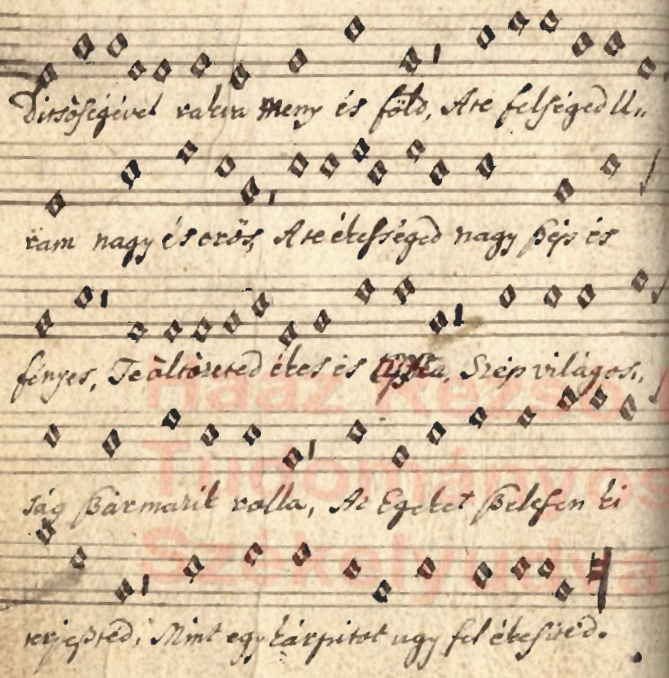 Ditsősegével rakva meny és föld, A te felséged U,,
ram nagy és erős, A te ékesseged nagy szép és
fényes, Te öltözeted ékes és tiszta, Szép világos,,
ság szármarik rolla, Az Egeket szélesen ki
terjeszted, Mint egy kárpitot ugy fel ékesited.
Haáz Rezső
Tudományos
Székelyudva